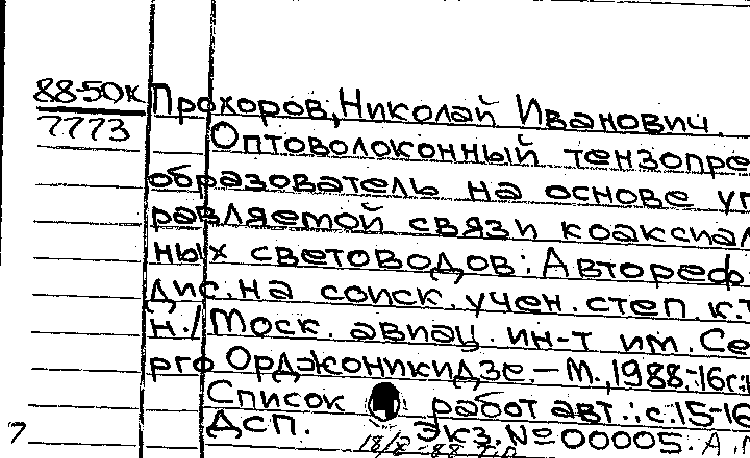 88-50к Прохоров, Николай Иванович.
7773
Оптоволоконный тензопре
образователь на основе уп
равляемой связи коаксиал
ных световодов: Автореф.
дис. на соиск. учен. степ. к.т
н./Моск. авиац. ин-т им. Се
рго Орджоникидзе.-М.,1988.-16с.
Список работ авт.: с.15-16
7 Дсп. Экз.№00005.
18/8-88